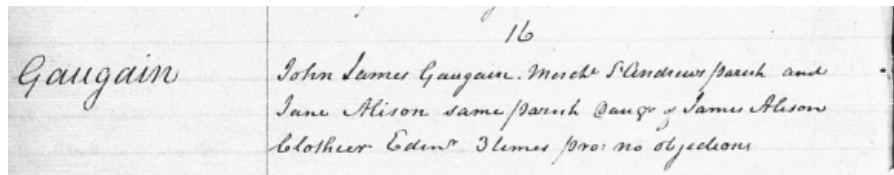 16
Gaugain
John James Gaugain. Mercht St Andrews parish and
Jane Alison same parish Daugr of James Alison
Clothier Edinr 3 times pro: no objections